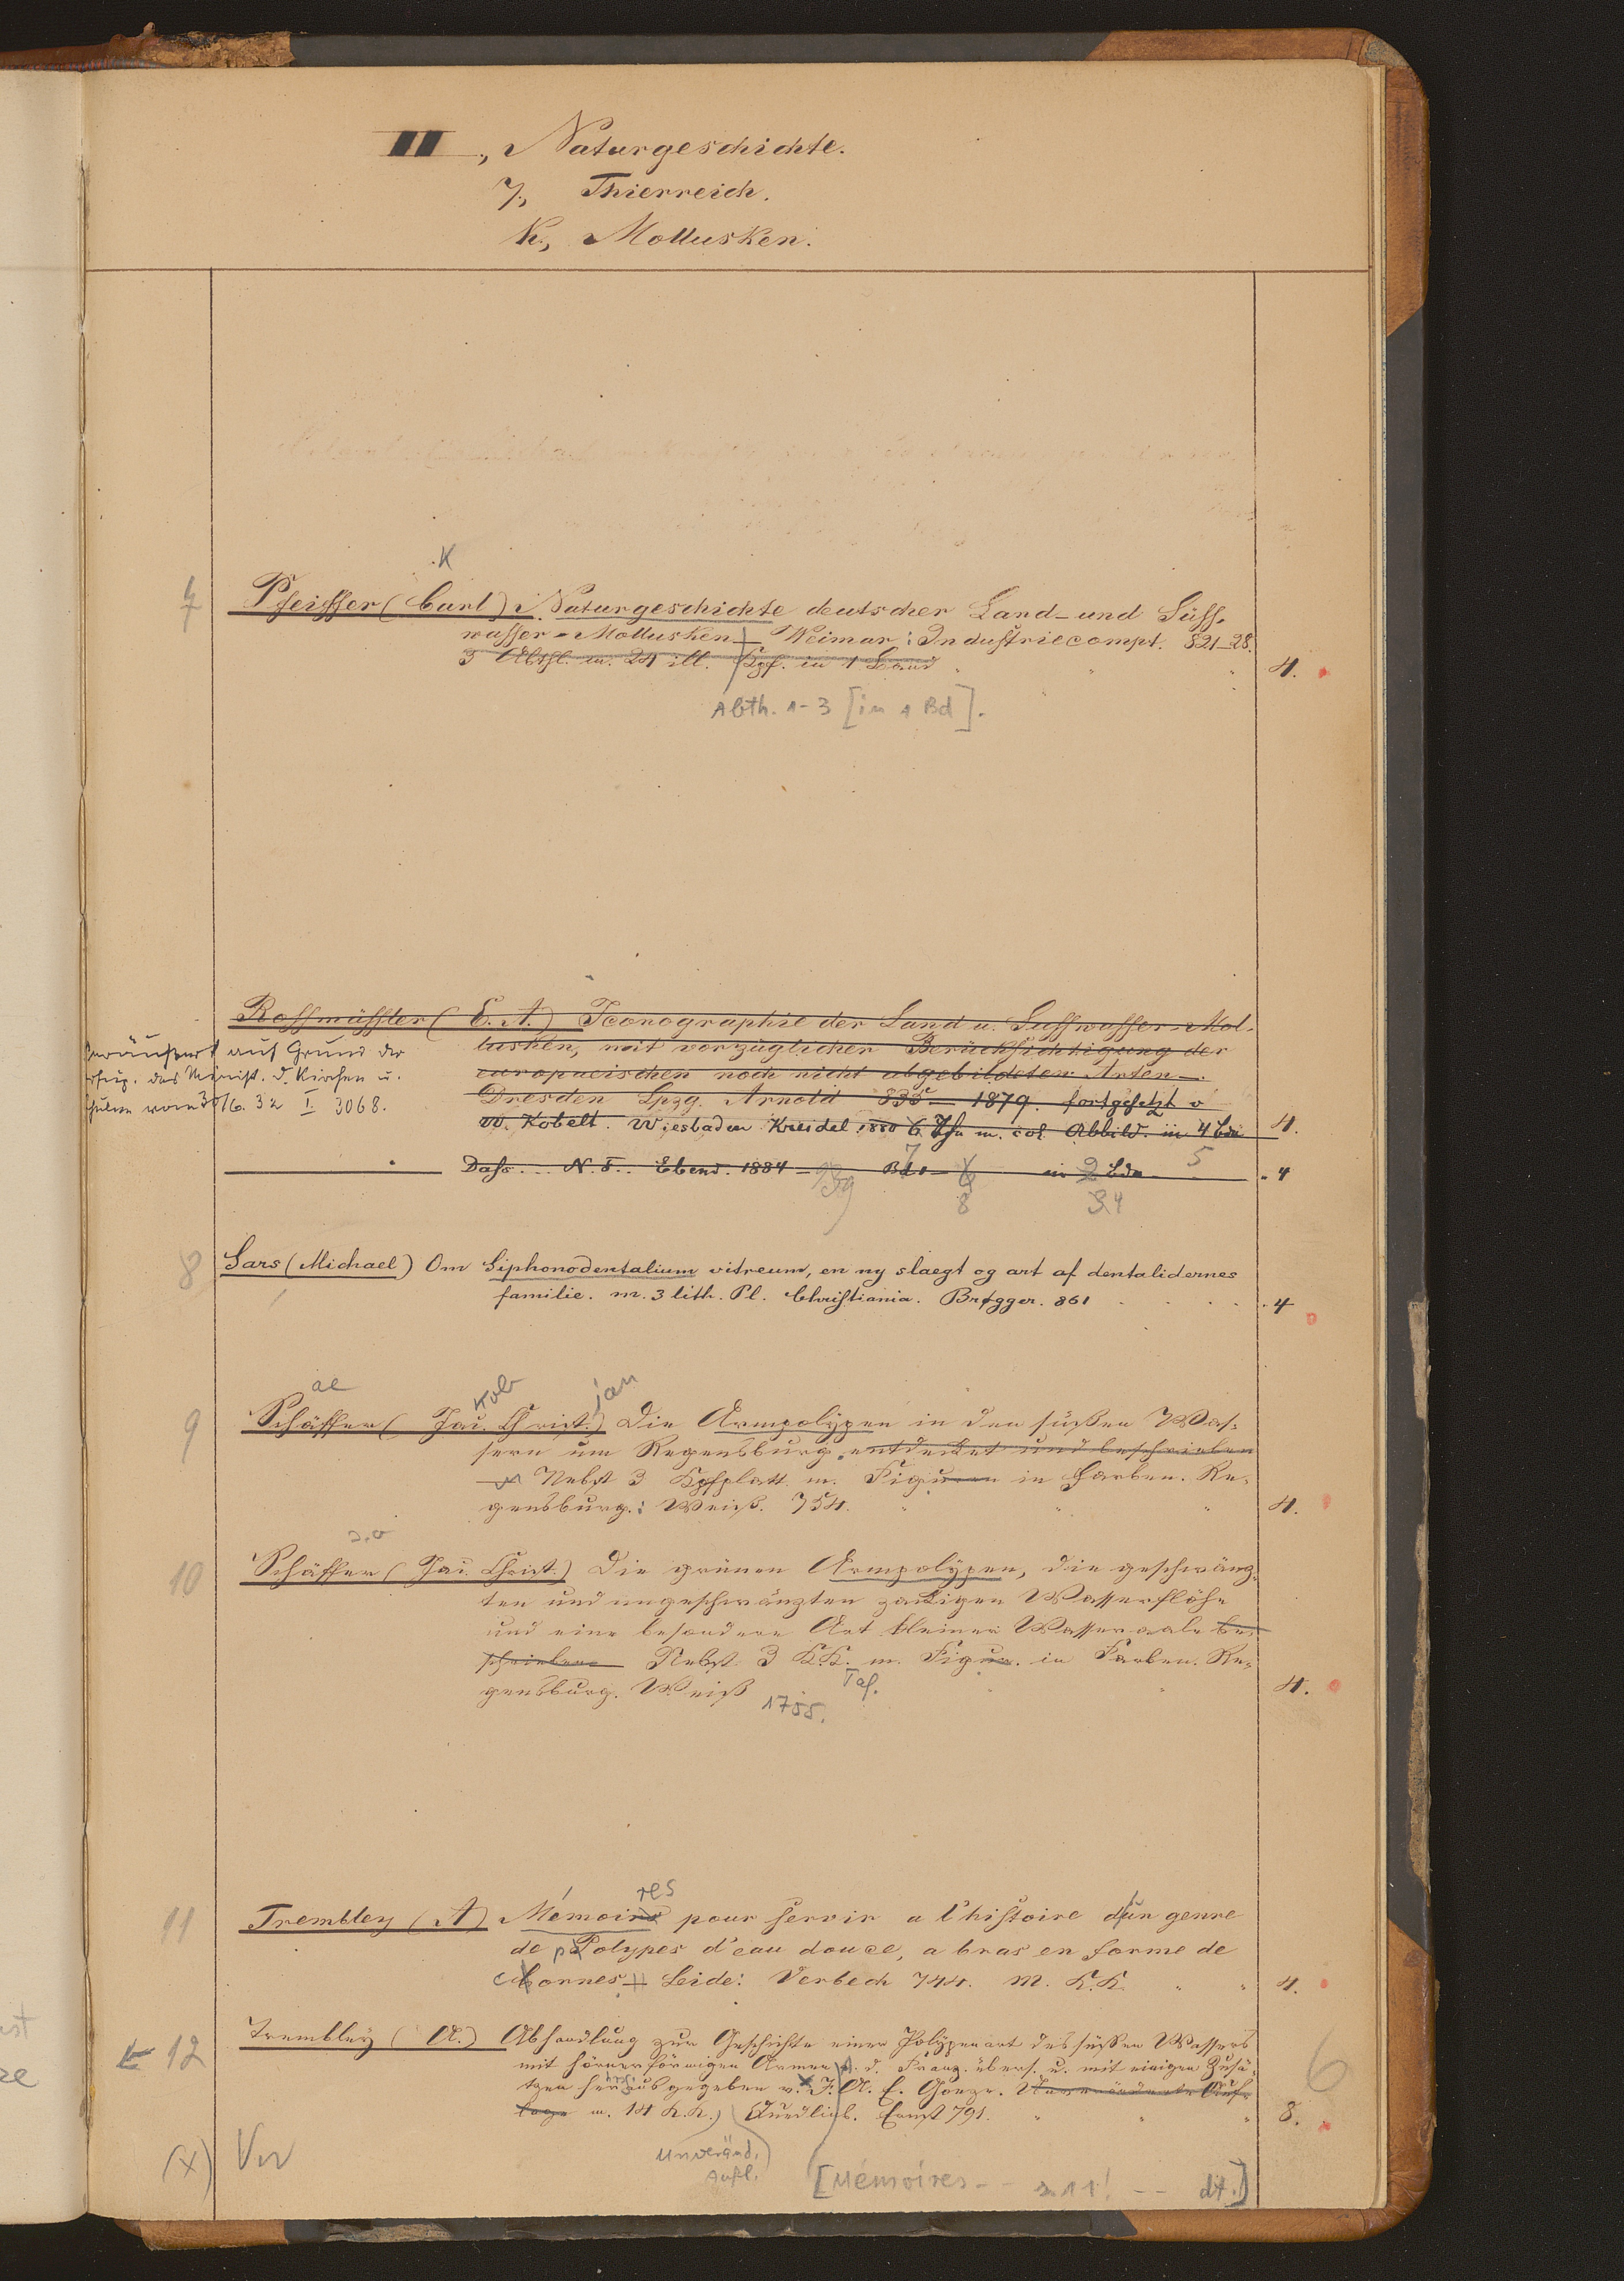 II., Naturgeschichte.
7., Thierreich.
k., Mollusken.
K
7
Pfeiffer (Carl) Naturgeschichte deutscher Land- und Süss-
wasser-Mollusken Weimar: Industriecompt. 821-28.
3 Abthl. m. 24 ill. Kpf. in 1 Band
4.
Abth. 1-3 [in 1 Bd].
Rossmässler (E. A.) Iconographie der Land u. Süsswasser-Mol-
lusken, mit vorzüglicher Berücksichtigung der
europaeischen noch nicht abgebildeten Arten.
Dresden Lpzg. Arnold 835 - 1879. fortgesetzt v
W. Kobelt. Wiesbaden Kreidel 1880 6 Thle m. col. Abbild. in 4 Bdn
4.
Veräußert auf Grund der
Verfüg. des Minist. d. Kirchen u.
Schulen vom 30/6. 32 I. 3068.
Dass... N. F.. Ebend. 1884 - Bd 1 - in 2 Bdn
7 5
4
8 4
8
Sars (Michael) Om Siphonodentalium vitreum, en ny slaegt og art af dentalidernes
familie. m. 3 lith. Pl. Christiania. Brøgger. 861
4
ae kob jan
9
Schäffer (Jac. Christ.) Die Armpolypen in den süßen Was-
sern um Regensburg entdecket und beschrieben
Nebst 3 Kpfplatt. m. Figuren in Farben. Re-
gensburg: Weiß. 754.
4.
10
Schäffer (Jac. Christ.) Die grünen Armpolypen, die geschwänz-
ten und ungeschwänzten zackigen Wasserflöhe
und eine besondere Art kleiner Wasseraale be-
schrieben Nebst 3 K.K. m. Figur. in Farben. Re-
gensburg. Weiß
Taf.
1755.
4.
res
11
Trembley (A) Mémoire pour servir a l'histoire d'un genre
de Polypes d'eau douce, a bras en forme de
cornes Leide: Verbeck 744. M. K.K.
4.
12
Trembley (A.) Abhandlung zur Geschichte einer Polypenart des süßen Wassers
mit hörnerförmigen Armen A. d. Franz. übers. u. mit einigen Zusä-
tzen herausgegeben v. J. A. E. Goeze. Unveränderte Auf-
lage m. 14 K.K. Quedlinb. Ernst 791.
8.
6
(x) Vw
Unveränd.
Aufl.
[Mémoires -- s. 11! -- dt.]